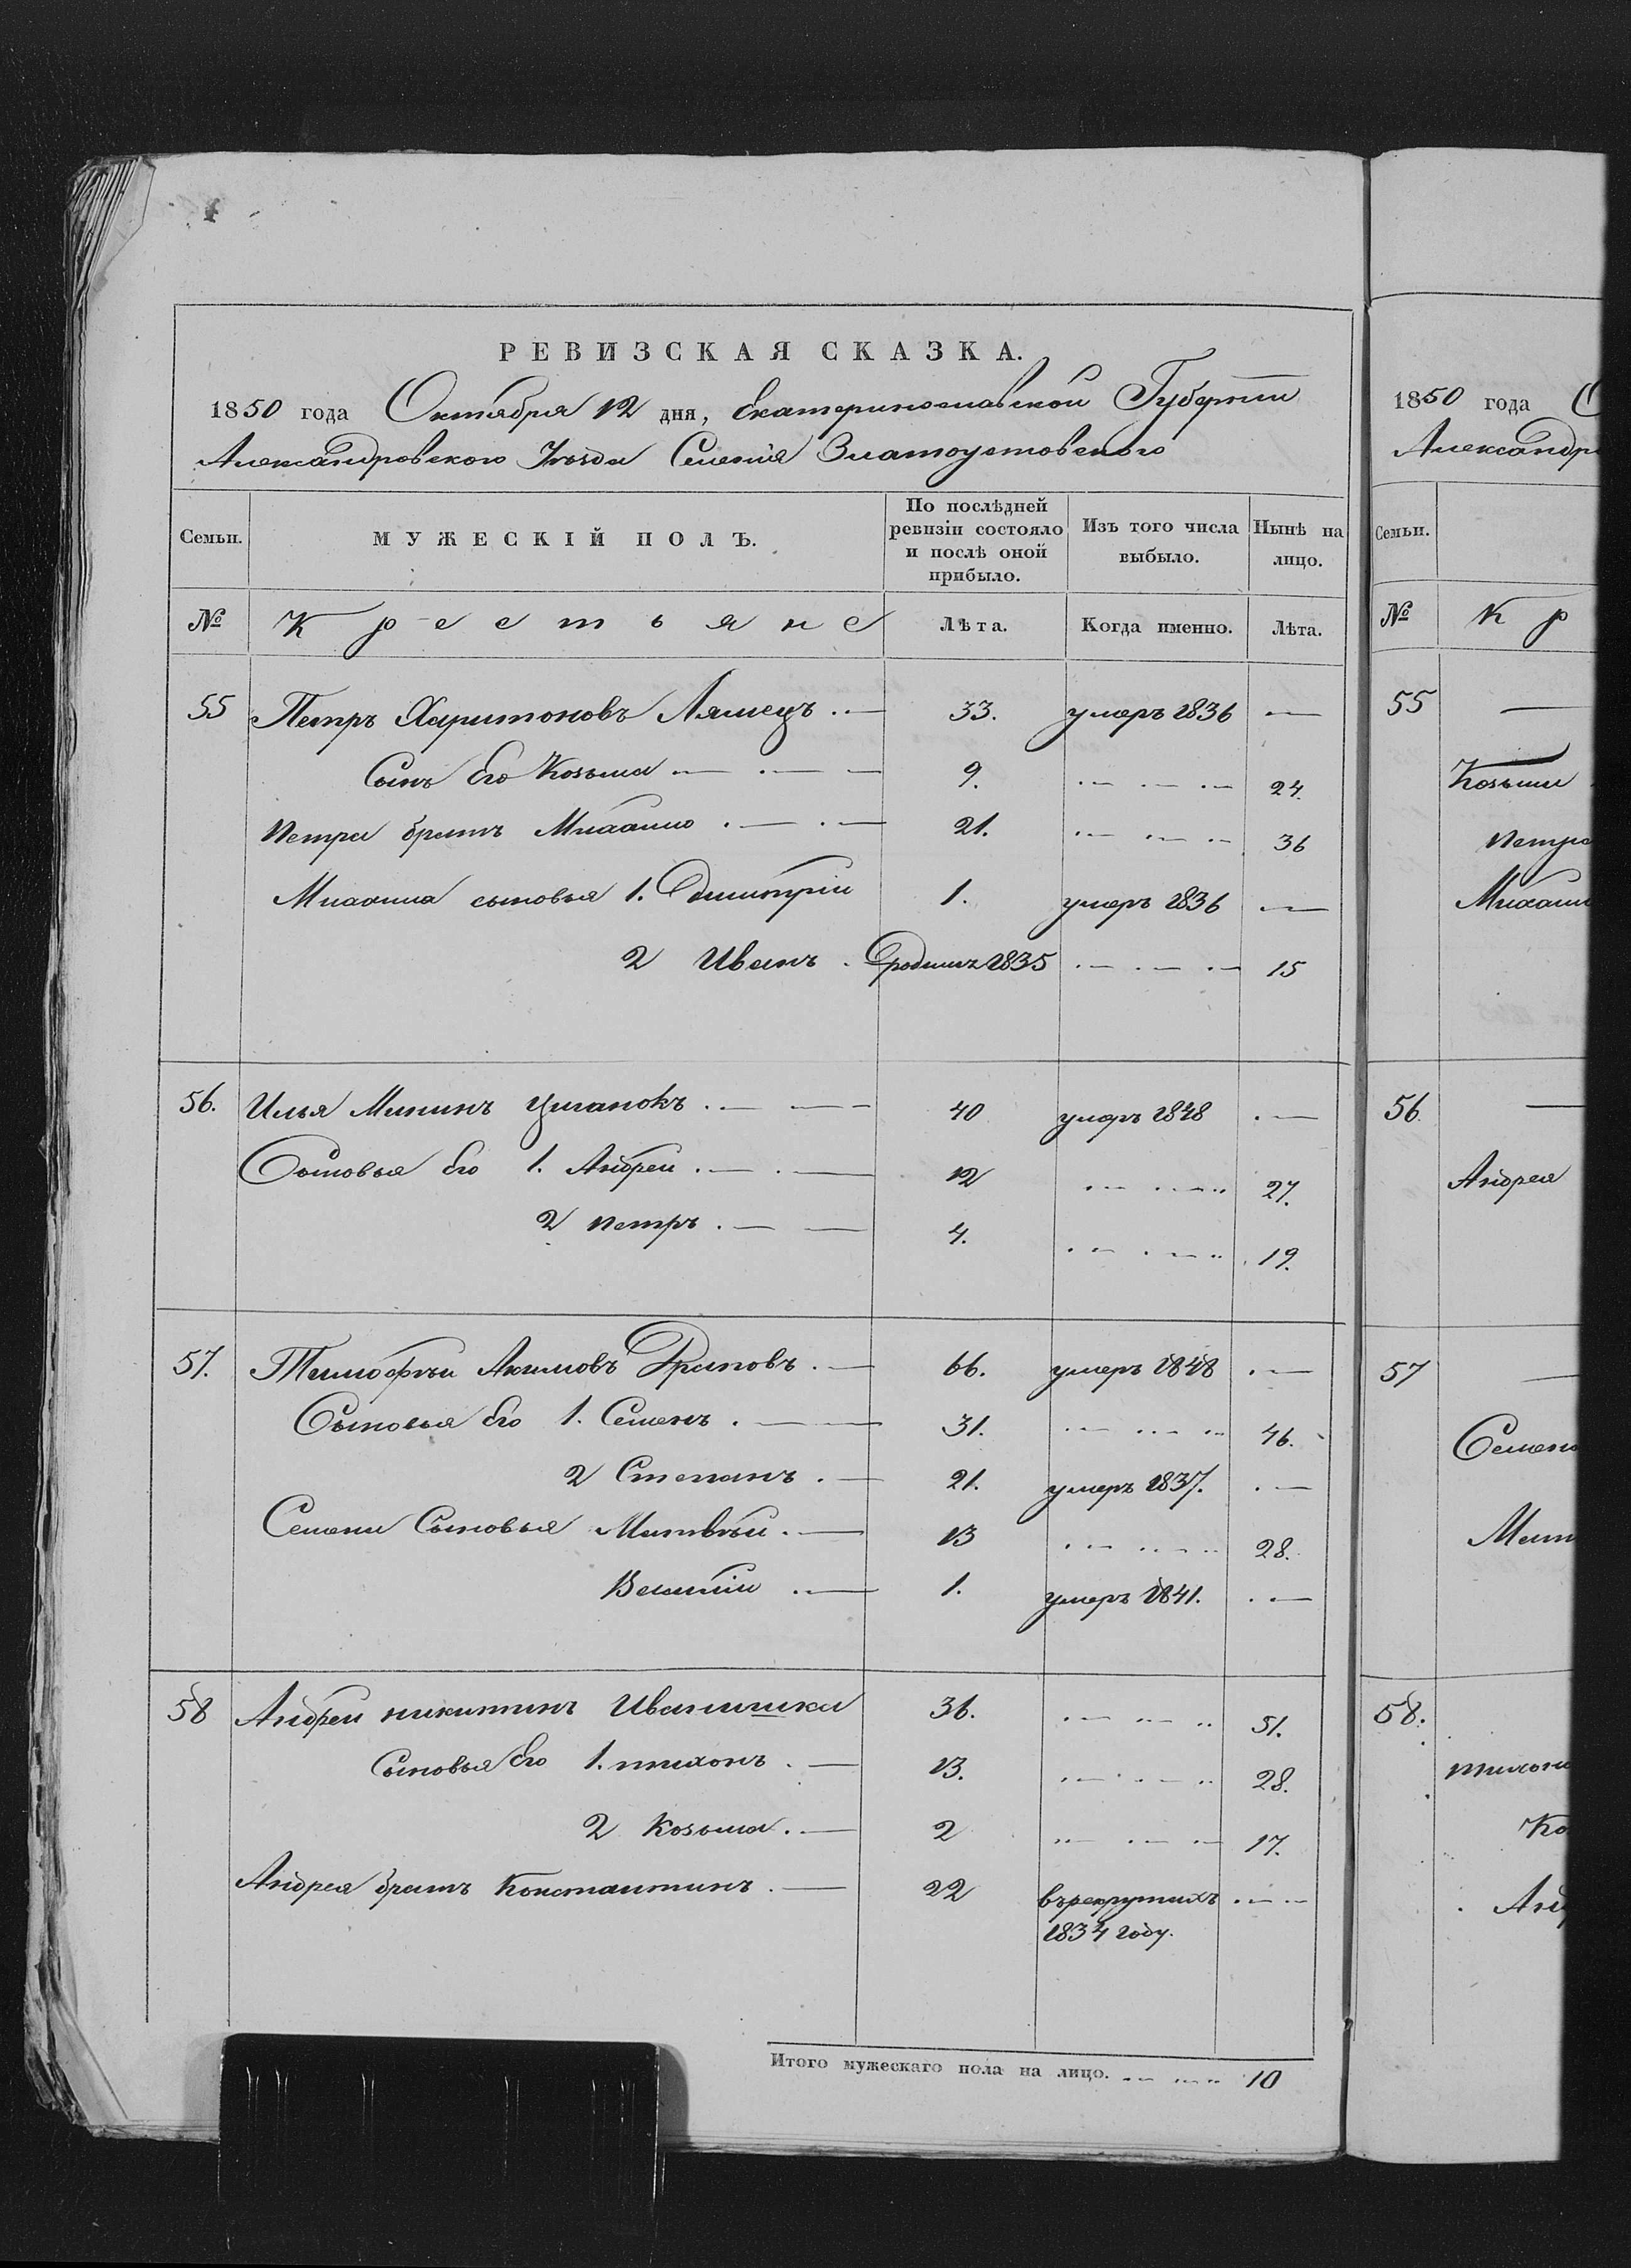 РЕВИЗСКАЯ СКАЗКА.
1850 года Октября 12 дня, Екатеринославской Губернии
Александровского Уѣзда Селенія Златоустовского
Семьи. МУЖЕСКІЙ ПОЛЪ. По послѣдней ревизіи состояло и послѣ оной прибыло. Изъ того числа выбыло. Нынѣ на лицо.
№ Крестьяне Лѣта. Когда именно. Лѣта.
55 Петръ Харитоновъ Лямецъ 33. умеръ 1836 —
Сынъ Его Козьма 9. 24.
Петра братъ Михаило 21. 36
Михаила сыновья 1. Дмитрій 1. умеръ 1836 —
2 Иванъ родилъ 1835 15
56. Илья Мининъ Цыганокъ 40 умеръ 1848 —
Сыновья Его 1. Андрей 12 27.
2 Петръ 4. 19.
57. Тимофѣй Акимовъ 66. умеръ 1848 —
Сыновья Его 1. Семенъ 31. 46.
2 Степанъ 21. умеръ 1837. —
Семена Сыновья Матвѣй 13 28.
Василій 1. умеръ 1841. —
58 Андрей Никитинъ Иванишка 36. 51.
Сыновья Его 1. Тихонъ 13. 28.
2 Козьма 2 17.
Андрея братъ Константинъ 22 въ рекрутахъ —
1834 году.
Итого мужескаго пола на лицо. 10
1850 года
Александр
Семьи.
№ Кр
55 —
Козьмы
Петра
Михаил
56. —
Андрея
57 —
Семена
Мат
58.
Тихона
Ко
Анд